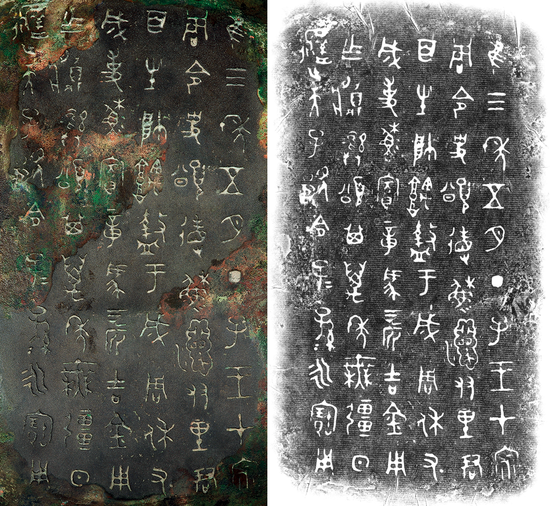 隹三年五月丁子王才宗
周令史頌省穌𤔲友里君
百生帥𩛥盩于成周休又
成事穌賓章馬四匹吉金用
乍𩰫彝頌其萬年無疆日
天子令子孫永寶用
隹三年五月丁子王才宗
周令史頌省穌𤔲友里君
百生帥𩛥盩于成周休又
成事穌賓章馬四匹吉金用
乍𩰫彝頌其萬年無疆日
天子令子孫永寶用